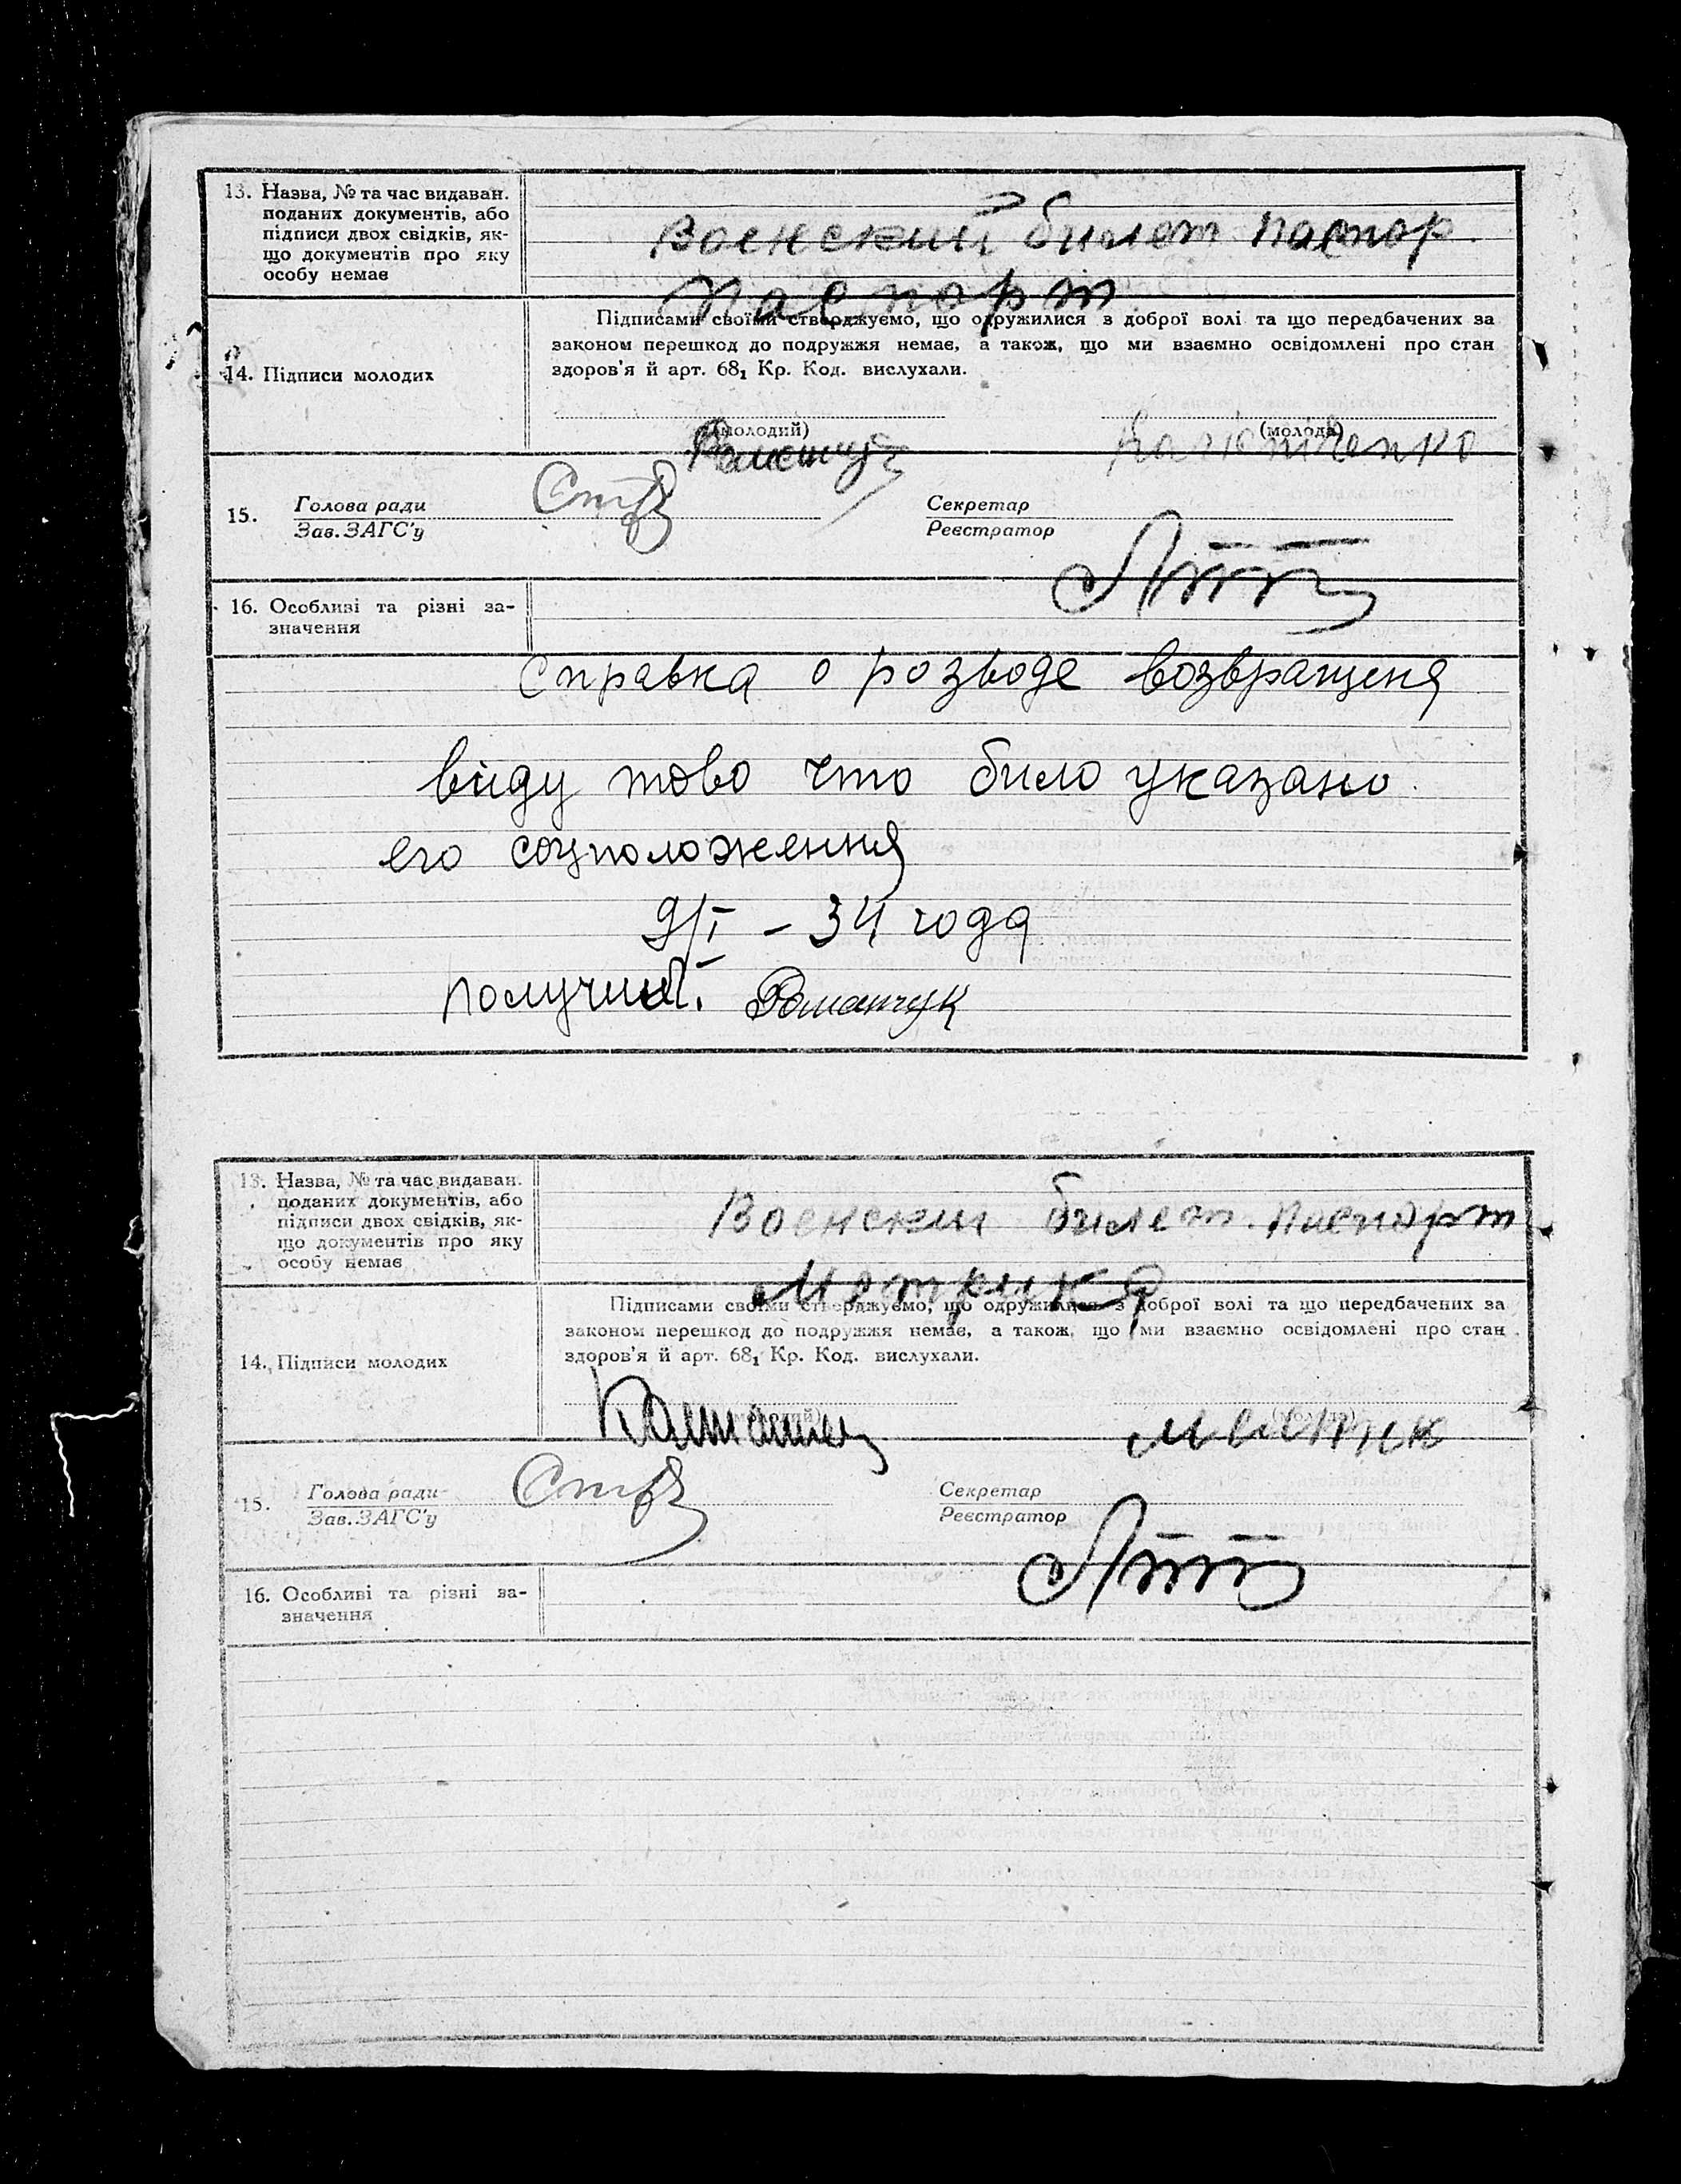 13. Назва, № та час видаван.
поданих документів, або
підписи двох свідків, як-
що документів про яку
особу немає
Воєнский билет паспор
паспорт
14. Підписи молодих
Підписами своїми стверджуємо, що одружилися з доброї волі та що передбачених за
законом перешкод до подружжя немає, а також, що ми взаємно освідомлені про стан
здоров'я й арт. 68₁ Кр. Код. вислухали.
(молодий)
(молода)
15. Голова ради
Зав. ЗАГС'у
Секретар
Реєстратор
16. Особливі та різні за-
значення
Справка о розводе возвращеня
виду тово что било указано
его соцположення
9/I – 34 года
получил. Романчук
13. Назва, № та час видаван.
поданих документів, або
підписи двох свідків, як-
що документів про яку
особу немає
Воєнский билет паспорт
Метрика
14. Підписи молодих
Підписами своїми стверджуємо, що одружилися з доброї волі та що передбачених за
законом перешкод до подружжя немає, а також, що ми взаємно освідомлені про стан
здоров'я й арт. 68₁ Кр. Код. вислухали.
Мельник
15. Голова ради
Зав. ЗАГС'у
Секретар
Реєстратор
16. Особливі та різні за-
значення